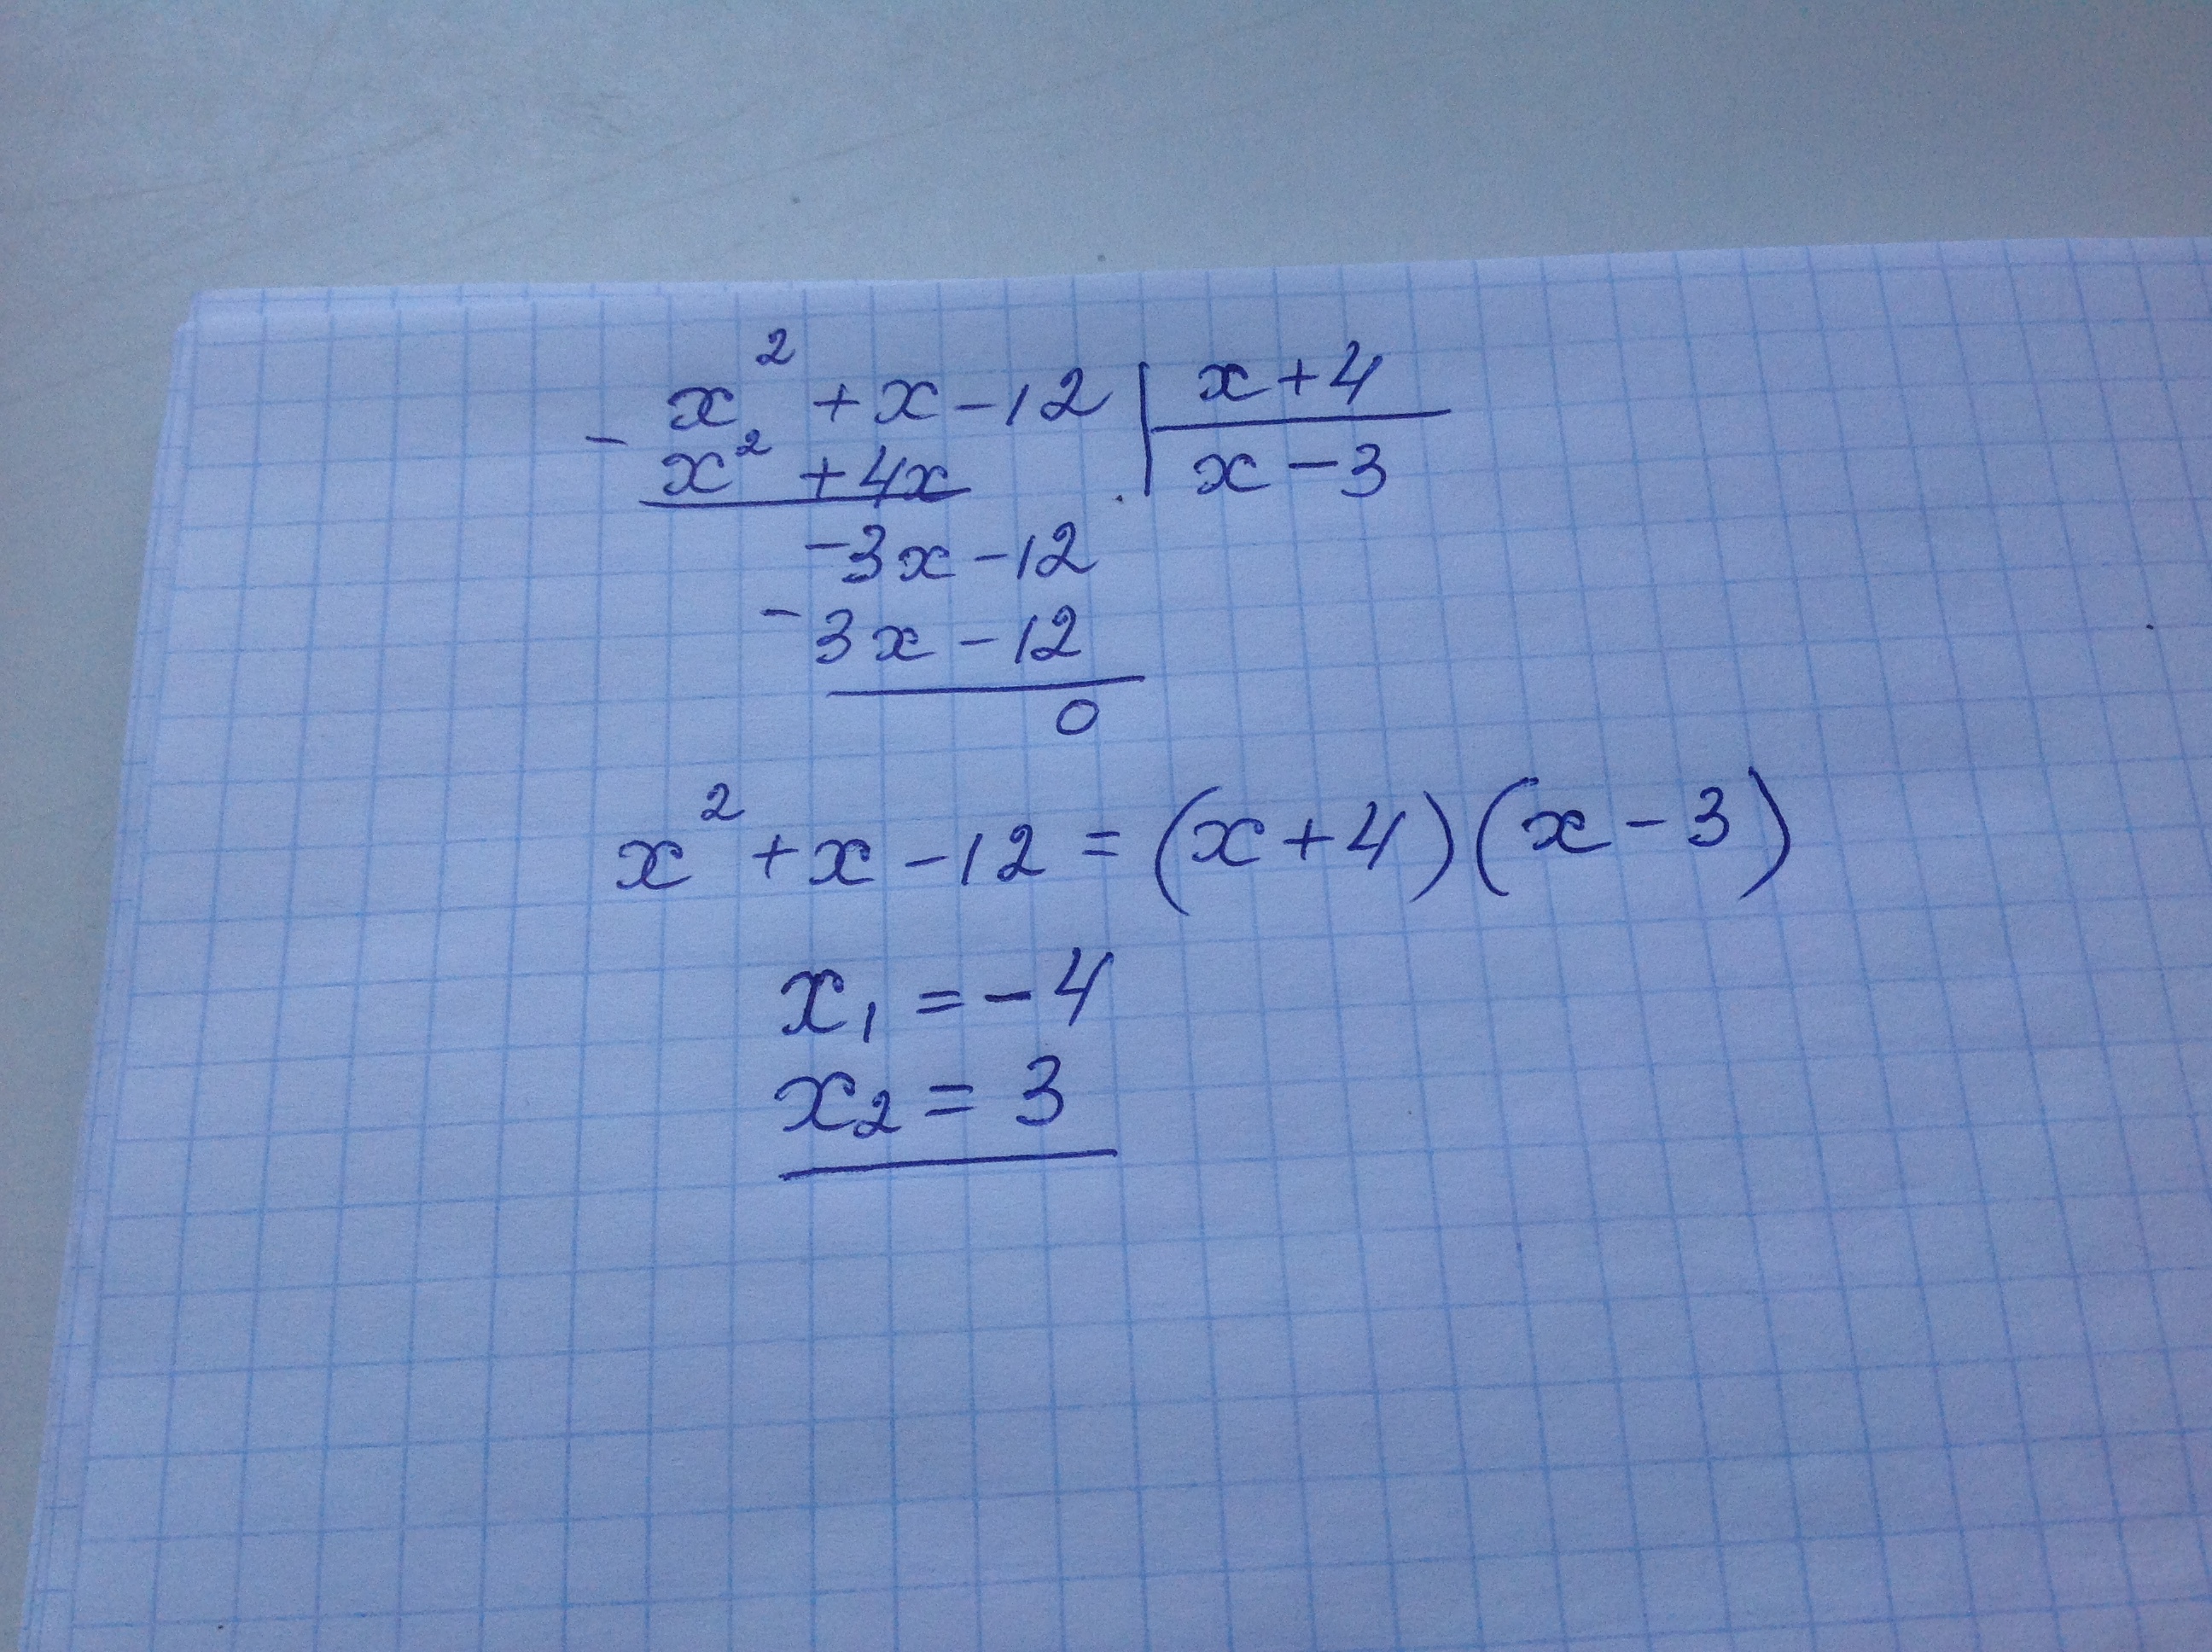 x² + x - 12 | x + 4
- x² + 4x | x - 3
-3x - 12
-3x - 12
0
x² + x - 12 = (x + 4)(x - 3)
x₁ = -4
x₂ = 3